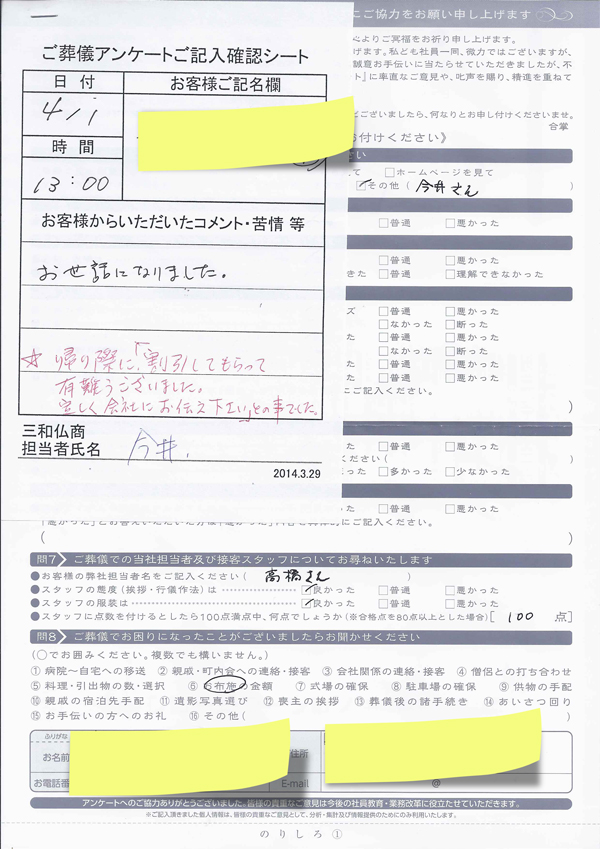 にご協力をお願い申し上げます
心よりご冥福をお祈り申し上げます。
げます。私ども社員一同、微力ではございますが、
誠意お手伝いに当たらせていただきましたが、不
ト」に率直なご意見や、叱声を賜り、精進を重ねて
ございましたら、何なりとお申し付けくださいませ。
合掌
お付けください》
ご葬儀アンケートご記入確認シート
日付
お客様ご記名欄
4/1
時間
13:00
お客様からいただいたコメント・苦情 等
お世話になりました。
☆ 帰り際に、「割引してもらって
有難うございました。
宜しく会社にお伝え下さい」との事でした。
三和仏商
担当者氏名
今井
2014.3.29
たい
て □ホームページを見て
☑その他( 今井さん )
□普通 □悪かった
□普通 □悪かった
きた □普通 □理解できなかった
ズ □普通 □悪かった
□なかった □断った
た □普通 □悪かった
□なかった □断った
た □普通 □悪かった
た □普通 □悪かった
にご記入ください。
)
た □普通 □悪かった
ください( )
った □多かった □少なかった
た □普通 □悪かった
にご記入ください。
( )
問7 ご葬儀での当社担当者及び接客スタッフについてお尋ねいたします
●お客様の弊社担当者名をご記入ください( 高橋さん )
●スタッフの態度(挨拶・行儀作法)は ☑良かった □普通 □悪かった
●スタッフの服装は ☑良かった □普通 □悪かった
●スタッフに点数を付けるとしたら100点満点中、何点でしょうか(※合格点を80点以上とした場合)[ 100 点]
問8 ご葬儀でお困りになったことがございましたらお聞かせください
(○でお囲みください。複数でも構いません。)
①病院〜自宅への移送 ②親戚・町内会への連絡・接客 ③会社関係の連絡・接客 ④僧侶との打ち合わせ
⑤料理・引出物の数・選択 ⑥お布施の金額 ⑦式場の確保 ⑧駐車場の確保 ⑨供物の手配
⑩親戚の宿泊先手配 ⑪遺影写真選び ⑫喪主の挨拶 ⑬葬儀後の諸手続き ⑭あいさつ回り
⑮お手伝いの方へのお礼 ⑯その他( )
ふりがな
お名前
住所
お電話番
E-mail
@
アンケートへのご協力ありがとうございました。皆様の貴重なご意見は今後の社員教育・業務改革に役立たせていただきます。
※ご記入頂きました個人情報は、皆様の貴重なご意見として、分析・集計及び情報提供のためにのみ利用いたします。
のりしろ①